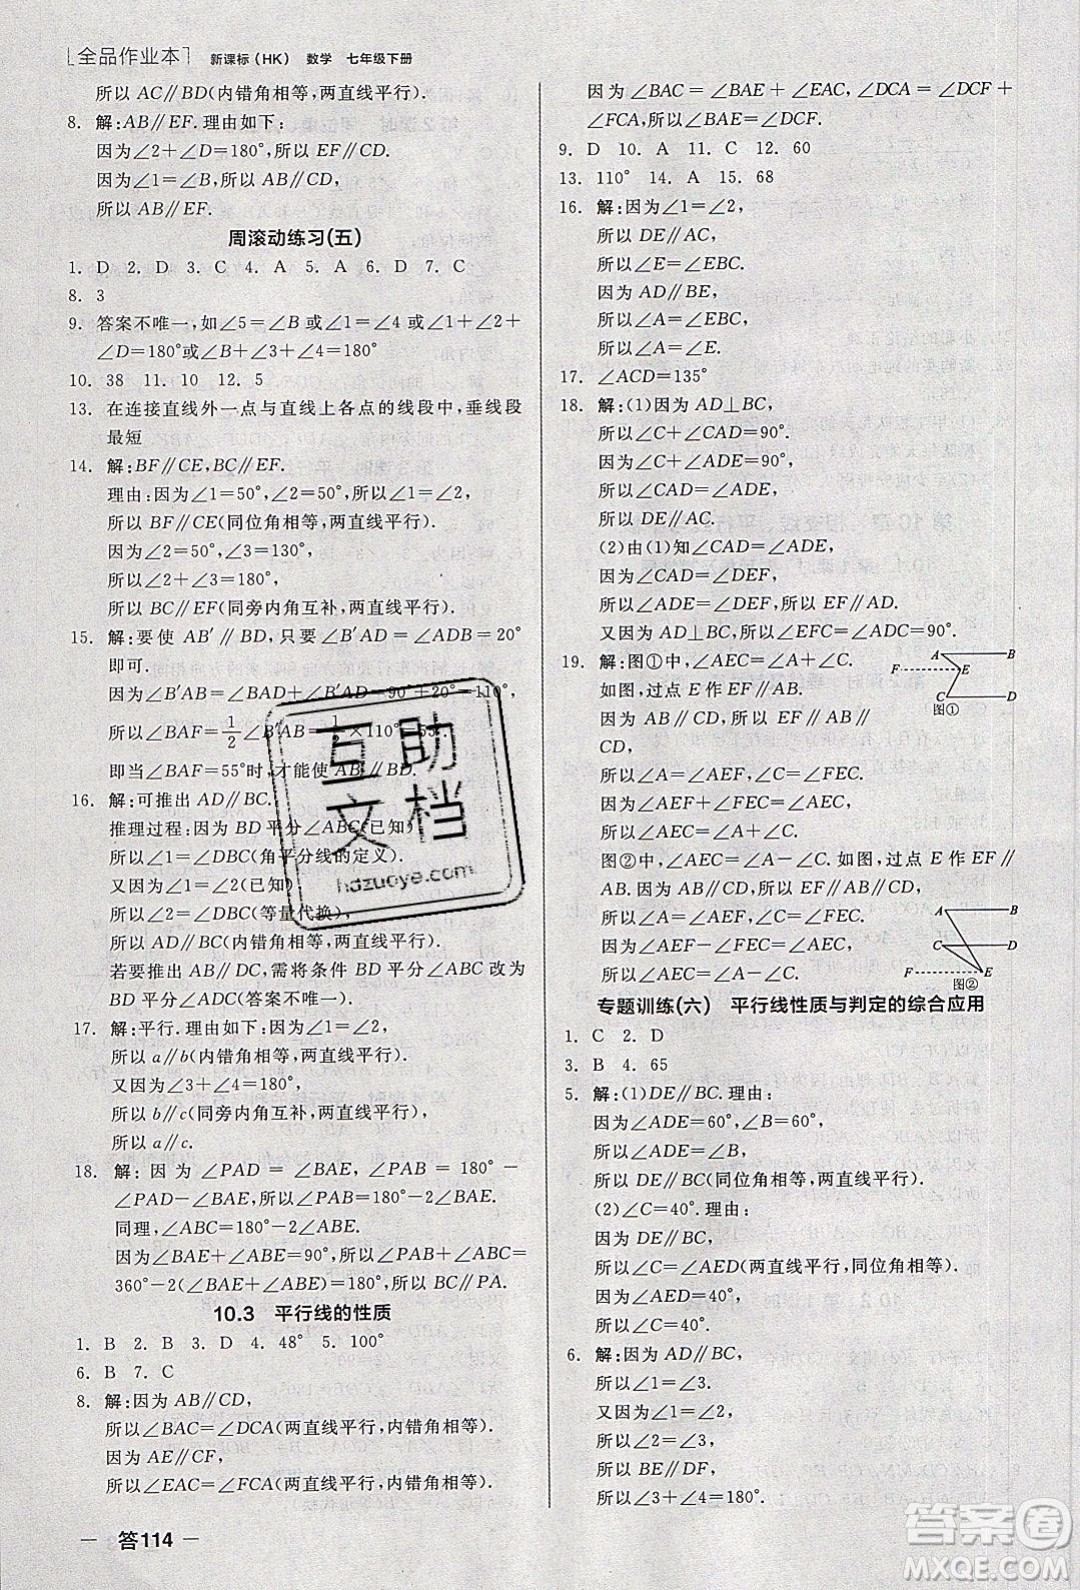 全品作业本 新课标(HK) 数学 七年级下册
所以 AC∥BD(内错角相等,两直线平行).
8. 解:AB∥EF.理由如下:
因为∠2+∠D=180°,所以 EF∥CD.
因为∠1=∠B,所以 AB∥CD,
所以 AB∥EF.
周滚动练习(五)
1. D 2. D 3. C 4. A 5. A 6. D 7. C
8. 3
9. 答案不唯一,如∠5=∠B 或∠1=∠4 或∠1+∠2+
∠D=180°或∠1+∠3+∠4=180°
10. 38 11. 10 12. 5
13. 在连接直线外一点与直线上各点的线段中,垂线段
最短
14. 解:BF∥CE,BC∥EF.
理由:因为∠1=50°,∠2=50°,所以∠1=∠2,
所以 BF∥CE(同位角相等,两直线平行).
因为∠2=50°,∠3=130°,
所以∠2+∠3=180°,
所以 BC∥EF(同旁内角互补,两直线平行).
15. 解:要使 AB′∥BD,只要∠B′AD=∠ADB=20°
即可.
因为∠B′AF=∠BAF,∠B′AD=90°+20°=110°,
所以∠BAF=1/2∠B′AB=1/2×110°=55°.
即当∠BAF=55°时,才能使 AB′∥BD.
16. 解:可推出 AD∥BC.
推理过程:因为 BD 平分∠ABC(已知),
所以∠1=∠DBC(角平分线的定义).
又因为∠1=∠2(已知),
所以∠2=∠DBC(等量代换),
所以 AD∥BC(内错角相等,两直线平行).
若要推出 AB∥DC,需将条件 BD 平分∠ABC 改为
BD 平分∠ADC(答案不唯一).
17. 解:平行.理由如下:因为∠1=∠2,
所以 a∥b(内错角相等,两直线平行).
又因为∠3+∠4=180°,
所以 b∥c(同旁内角互补,两直线平行),
所以 a∥c.
18. 解:因为∠PAD=∠BAE,∠PAB=180°-
∠PAD-∠BAE,所以∠PAB=180°-2∠BAE.
同理,∠ABC=180°-2∠ABE.
因为∠BAE+∠ABE=90°,所以∠PAB+∠ABC=
360°-2(∠BAE+∠ABE)=180°,所以 BC∥PA.
10.3 平行线的性质
1. B 2. B 3. D 4. 48° 5. 100°
6. B 7. C
8. 解:因为 AB∥CD,
所以∠BAC=∠DCA(两直线平行,内错角相等).
因为 AE∥CF,
所以∠EAC=∠FCA(两直线平行,内错角相等).
— 答114 —
因为∠BAC=∠BAE+∠EAC,∠DCA=∠DCF+
∠FCA,所以∠BAE=∠DCF.
9. D 10. A 11. C 12. 60
13. 110° 14. A 15. 68
16. 解:因为∠1=∠2,
所以 DE∥AC,
所以∠E=∠EBC.
因为 AD∥BE,
所以∠A=∠EBC,
所以∠A=∠E.
17. ∠ACD=135°
18. 解:(1)因为 AD⊥BC,
所以∠C+∠CAD=90°.
因为∠C+∠ADE=90°,
所以∠CAD=∠ADE,
所以 DE∥AC.
(2)由(1)知∠CAD=∠ADE,
因为∠CAD=∠DEF,
所以∠ADE=∠DEF,所以 EF∥AD.
又因为 AD⊥BC,所以∠EFC=∠ADC=90°.
19. 解:图①中,∠AEC=∠A+∠C.
如图,过点 E 作 EF∥AB.
因为 AB∥CD,所以 EF∥AB∥
CD,
所以∠A=∠AEF,∠C=∠CEF,
所以∠AEF+∠CEF=∠A+∠C,
所以∠AEC=∠A+∠C.
图②中,∠AEC=∠A-∠C.如图,过点 E 作 EF∥
AB.因为 AB∥CD,所以 EF∥AB∥CD,
所以∠A=∠AEF,∠C=∠CEF.
因为∠AEC=∠AEF-∠CEF,
所以∠AEC=∠A-∠C.
A B
F E
C D
图①
A B
C D
F E
图②
专题训练(六) 平行线性质与判定的综合应用
1. C 2. D
3. B 4. 65
5. 解:(1)DE∥BC.理由:
因为∠ADE=60°,∠B=60°,
所以∠ADE=∠B,
所以 DE∥BC(同位角相等,两直线平行).
(2)∠C=40°.理由:
因为 DE∥BC,
所以∠C=∠AED(两直线平行,同位角相等).
因为∠AED=40°,
所以∠C=40°.
6. 解:因为 AC∥DE,
所以∠1=∠3.
又因为∠1=∠2,
所以∠2=∠3,
所以 BE∥DF,
所以∠3+∠4=180°.
互助
文档
hdzuoye.com
答案圈
MXQE.COM